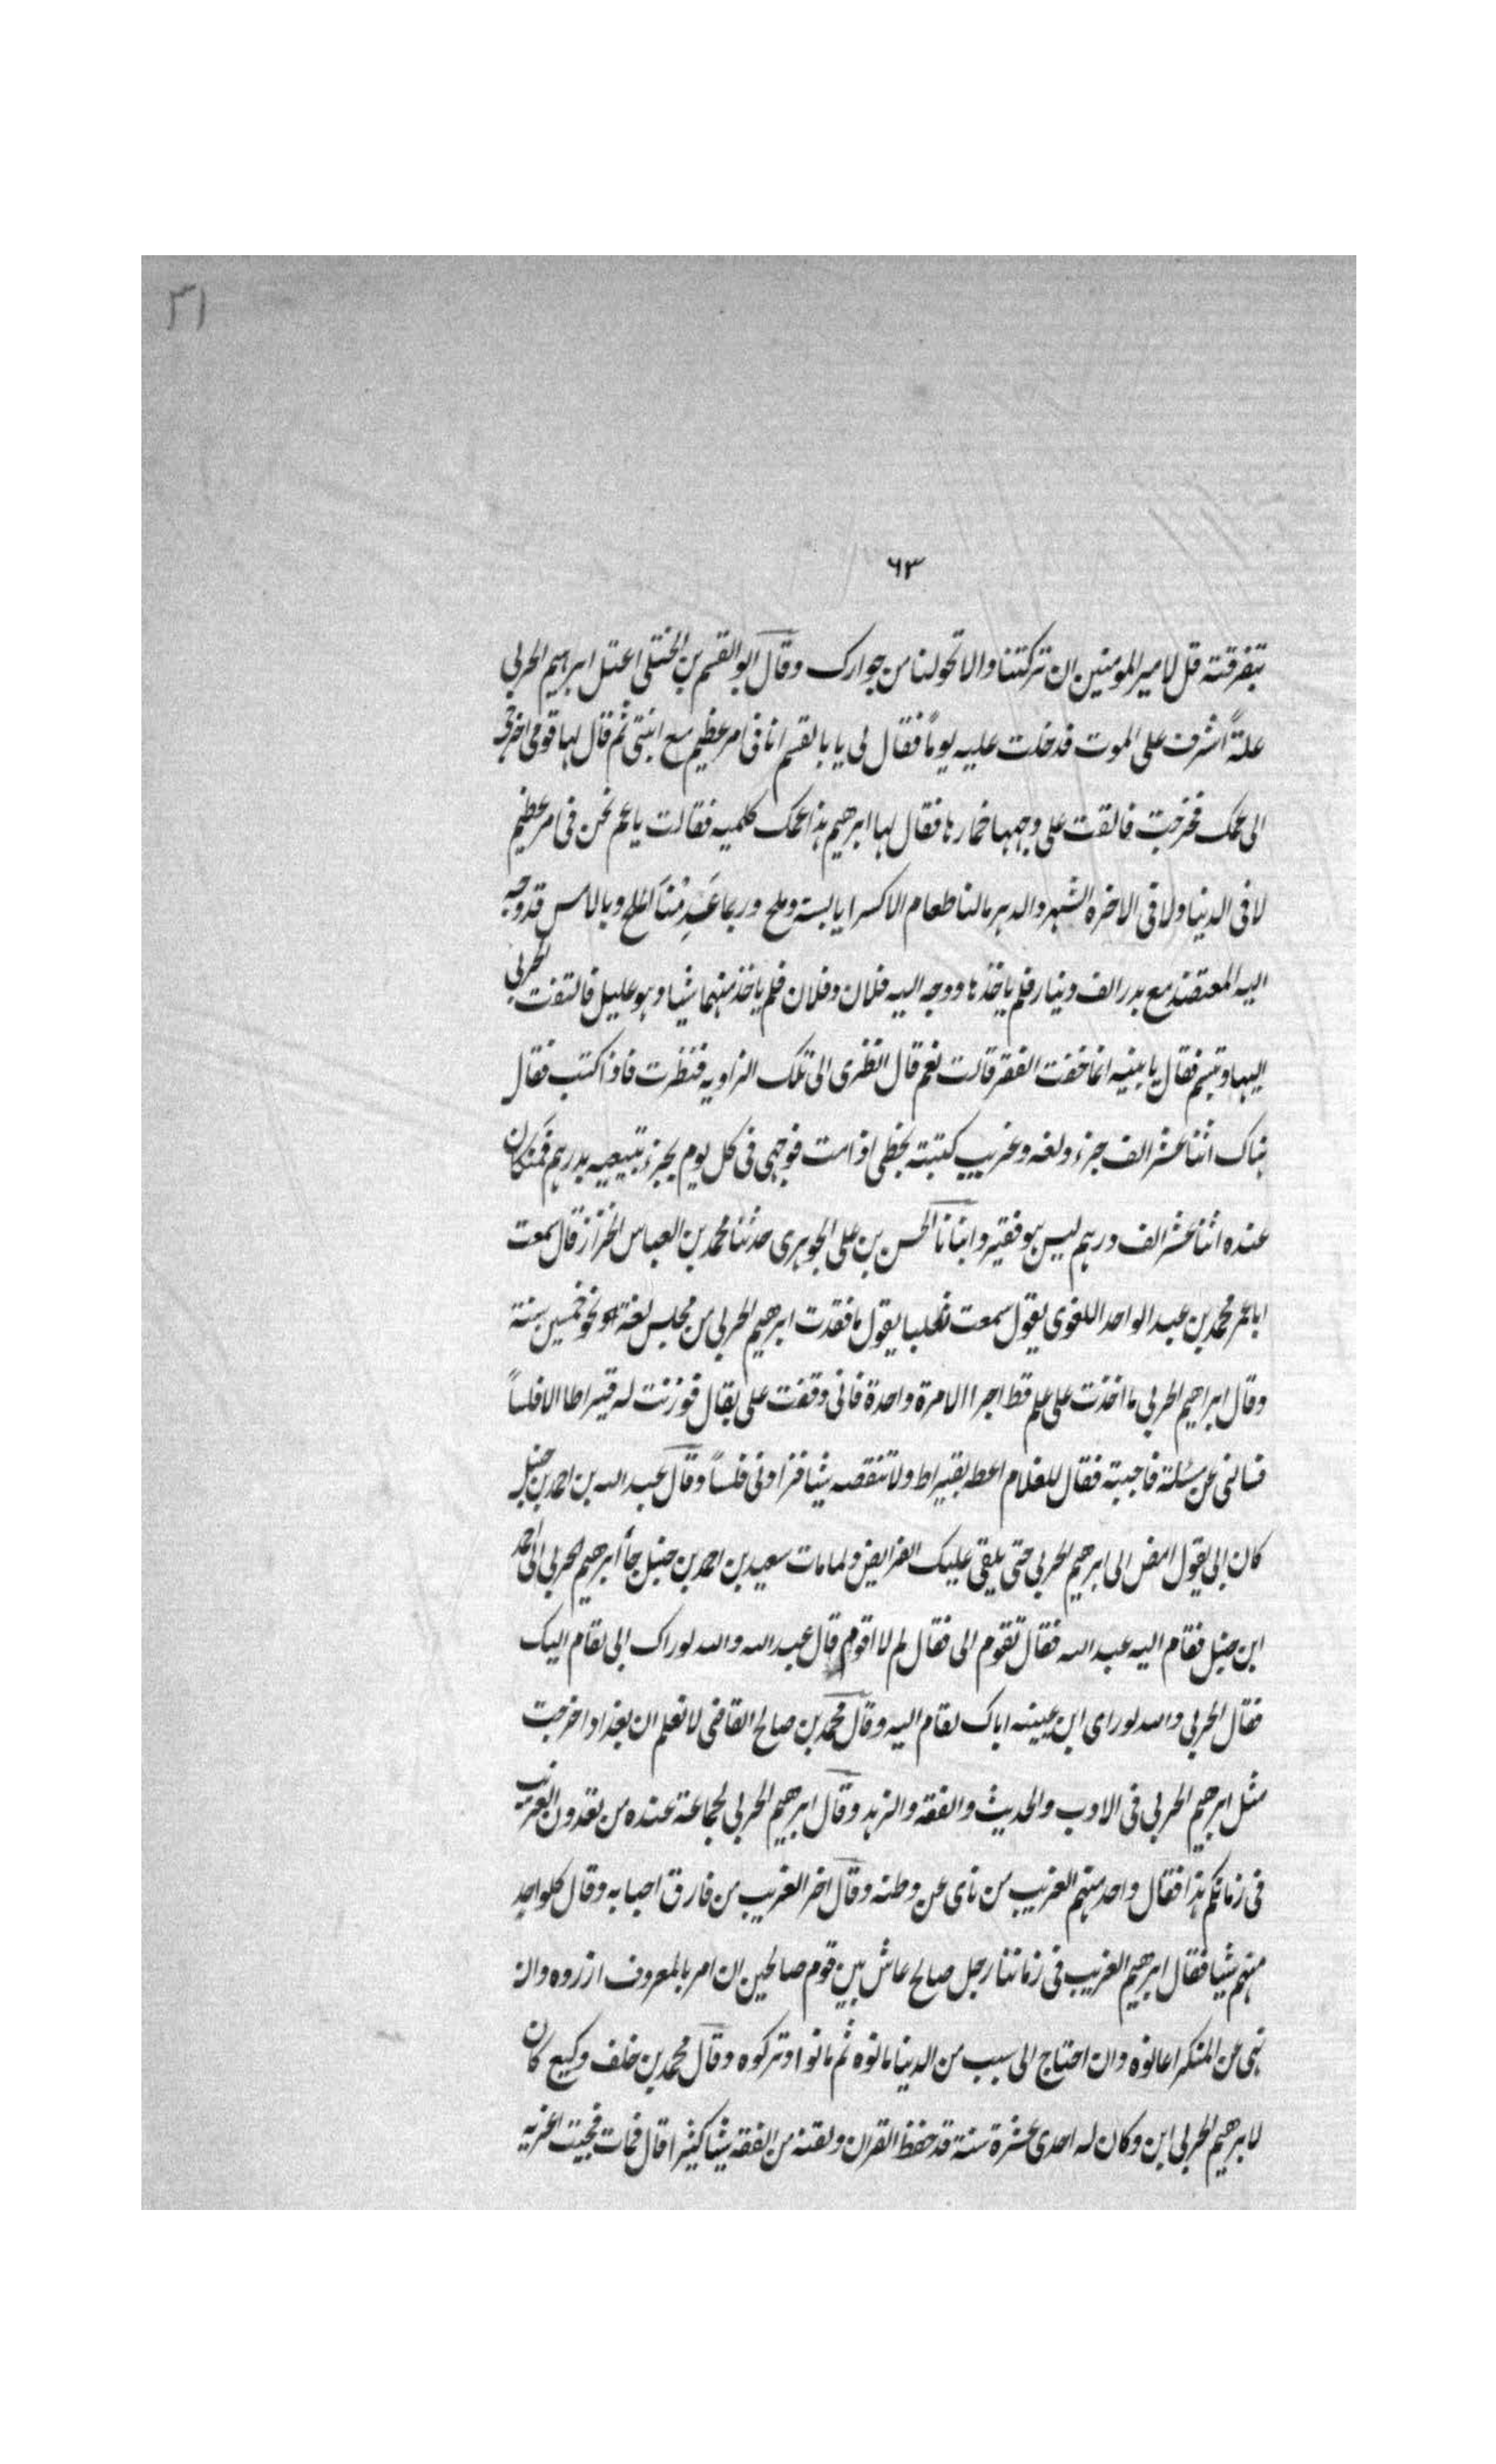 ٣١
٦٣
بتفرقته قل لامير المومنين ان تركتنا والا تحولنا من جوارك وقال ابو القسم بن الختلي اعتل ابرهيم الحربي
علةً اشرف على الموت فدخلت عليه يوماً فقال لي يا بالقسم انا في امر عظيم مع ابنتي ثم قال لها قومي اخرجي
الى عمك فخرجت فالقت على وجهها خمارها فقال لها ابرهيم هذا عمك كلميه فقالت يا عم نحن في امر عظيم
لا في الدنيا ولا في الاخره الشهر والدهر مالنا طعام الا كسرا يابسة وملح وربما عَدِمْنا الملح وبالامس قد وجه
اليه المعتضد مع بدر الف دينار فلم ياخذها ووجه اليه فلان وفلان فلم ياخذ منهما شيا وهو عليل فالتفت الحربي
اليها وتبسم فقال يا بنيه انما خفت الفقر قالت نعم قال انظري الى تلك الزاويه فنظرت فاذا كتب فقال
هناك اثنا عشر الف جزء ولغه وغريب كتبته بخطي اذا مت فوجهي في كل يوم بجزء تبيعيه بدرهم فمن كان
عنده اثنا عشر الف درهم ليس هو فقير وانبانا الحسن بن علي الجوهري حدثنا محمد بن العباس الخزاز قال سمعت
ابا عمر محمد بن عبد الواحد اللغوي يقول سمعت ثعلبا يقول ما فقدت ابرهيم الحربي من مجلس لغة او نحو خمسين سنة
وقال ابراهيم الحربي ما اخذت على علم قط اجرا الا مرة واحدة فاني وقفت على بقال فوزنت له قيراطا الا فلساً
فسالني عن مسئلة فاجبته فقال للغلام اعط بقيراط ولا تنقصه شيا فزادني فلساً وقال عبد الله بن احمد بن حنبل
كان ابي يقول امض الى ابرهيم الحربي حتى يلقي عليك الفرايض ولما مات سعيد بن احمد بن حنبل جأ ابرهيم الحربي الى احمد
ابن حنبل فقام اليه عبد الله فقال تقوم الى فقال لم لا اقوم قال عبد الله والله لو راك ابي لقام اليك
فقال الحربي والله لو راى ابن عيينه اباك لقام اليه وقال محمد بن صالح القاضي لا نعلم ان بغداد اخرجت
مثل ابرهيم الحربي في الادب والحديث والفقه والزهد وقال ابرهيم الحربي لجماعة عنده من تعدون الغريب
في زمانكم هذا فقال واحد منهم الغريب من نأى عن وطنه وقال اخر الغريب من فارق احبابه وقال كل واحد
منهم شيا فقال ابرهيم الغريب في زماننا رجل صالح عاش بين قوم صالحين ان امر بالمعروف ازروه وان
نهى عن المنكر اعانوه وان احتاج الى سبب من الدنيا مانوه ثم ماتوا وتركوه وقال محمد بن خلف وكيع كان
لابرهيم الحربي ابن وكان له احدى عشرة سنة قد حفظ القران ولقنه من الفقه شيا كثيرا قال فمات فجيت اعزيه